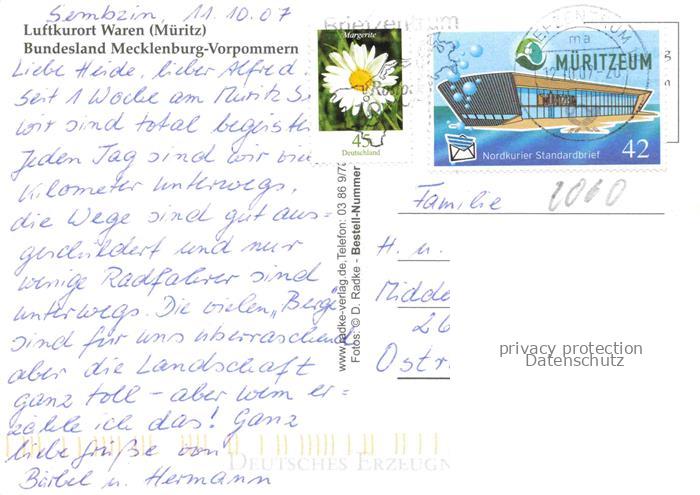 Sembzin, 11.10.07
Luftkurort Waren (Müritz)
Bundesland Mecklenburg-Vorpommern
Liebe Heide, lieber Alfred.
Seit 1 Woche am Müritz S
wir sind total begeist
Jeden Tag sind wir vie
Kilometer unterwegs,
die Wege sind gut aus=
geschildert und nur
wenige Radfahrer sind
unterwegs. Die vielen „Berge"
sind für uns überraschend
aber die Landschaft
ganz toll - aber wem er=
zähle ich das! Ganz
liebe Grüße von
Bärbel u. Hermann
Briefzentrum
Margerite
45
Deutschland
BRIEFZENTRUM
ma
MÜRITZEUM
MÜRITZEUM
Nordkurier Standardbrief
42
www.radke-verlag.de, Telefon: 03 86 9/7
Fotos: © D. Radke - Bestell-Nummer
Familie
2060
H. u.
Midde
26
Ostr
privacy protection
Datenschutz
DEUTSCHES ERZEUGN